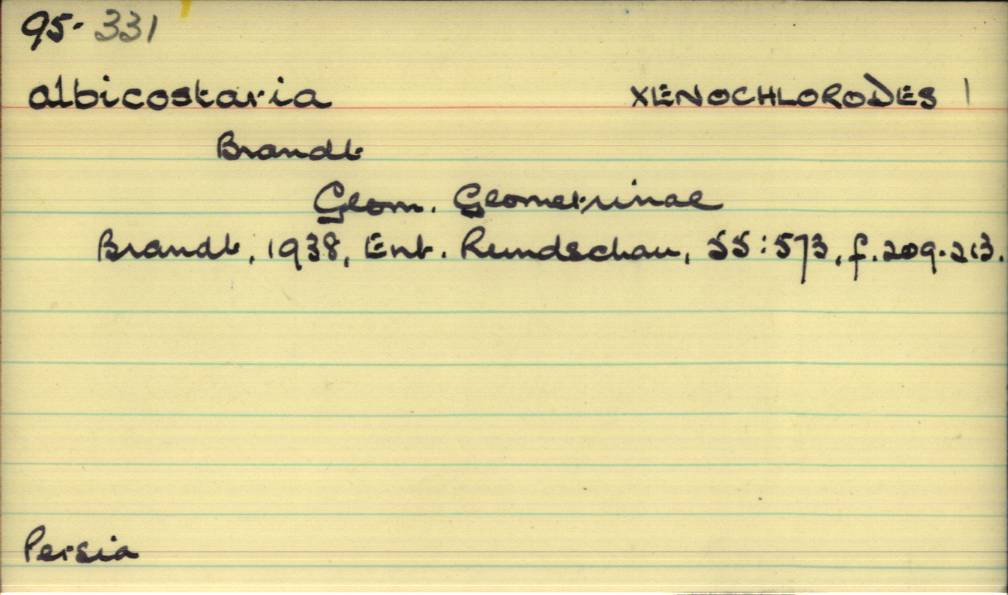 95-331
albicostaria XENOCHLORODES 1
Brandt
Geom. Geometrinae
Brandt, 1938, Ent. Rundschau, 55:573, f.209-213.
Persia